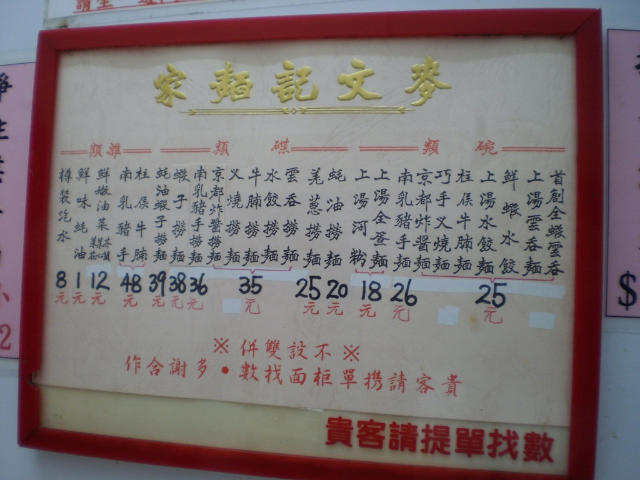 麥文記麵家
碗類
首創全蝦雲吞
上湯雲吞麵
鮮蝦水餃
上湯水餃麵
柱侯牛腩麵
巧手叉燒麵
京都炸醬麵
25元
南乳豬手麵
26元
上湯全蛋麵
上湯河粉
18元
碟類
蚝油撈麵
20元
羌葱撈麵
25元
雲吞撈麵
水餃撈麵
牛腩撈麵
叉燒撈麵
京都炸醬撈麵
35元
南乳豬手撈麵
36元
蝦子撈麵
38元
蚝油蝦子撈麵
39元
雜類
柱侯牛腩
南乳豬手
48元
鮮嫩油菜
12元
鮮味蚝油
1元
樽裝汽水
8元
※不設雙併※
貴客請携單櫃面找數•多謝合作
貴客請提單找數
$
2